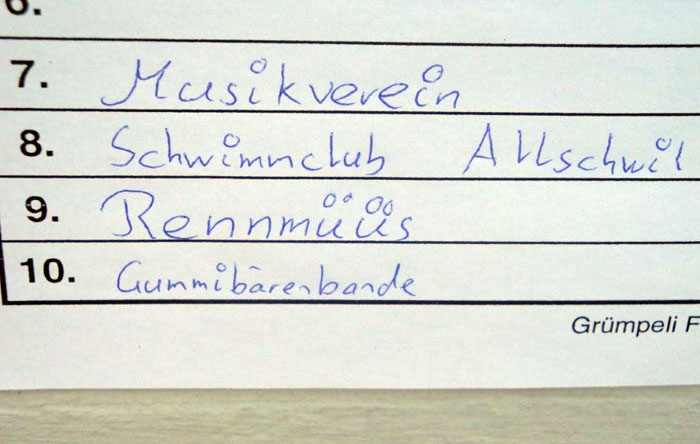 6.
7. Musikverein
8. Schwimmclub Allschwil
9. Rennmüüs
10. Gummibärenbande
Grümpeli F